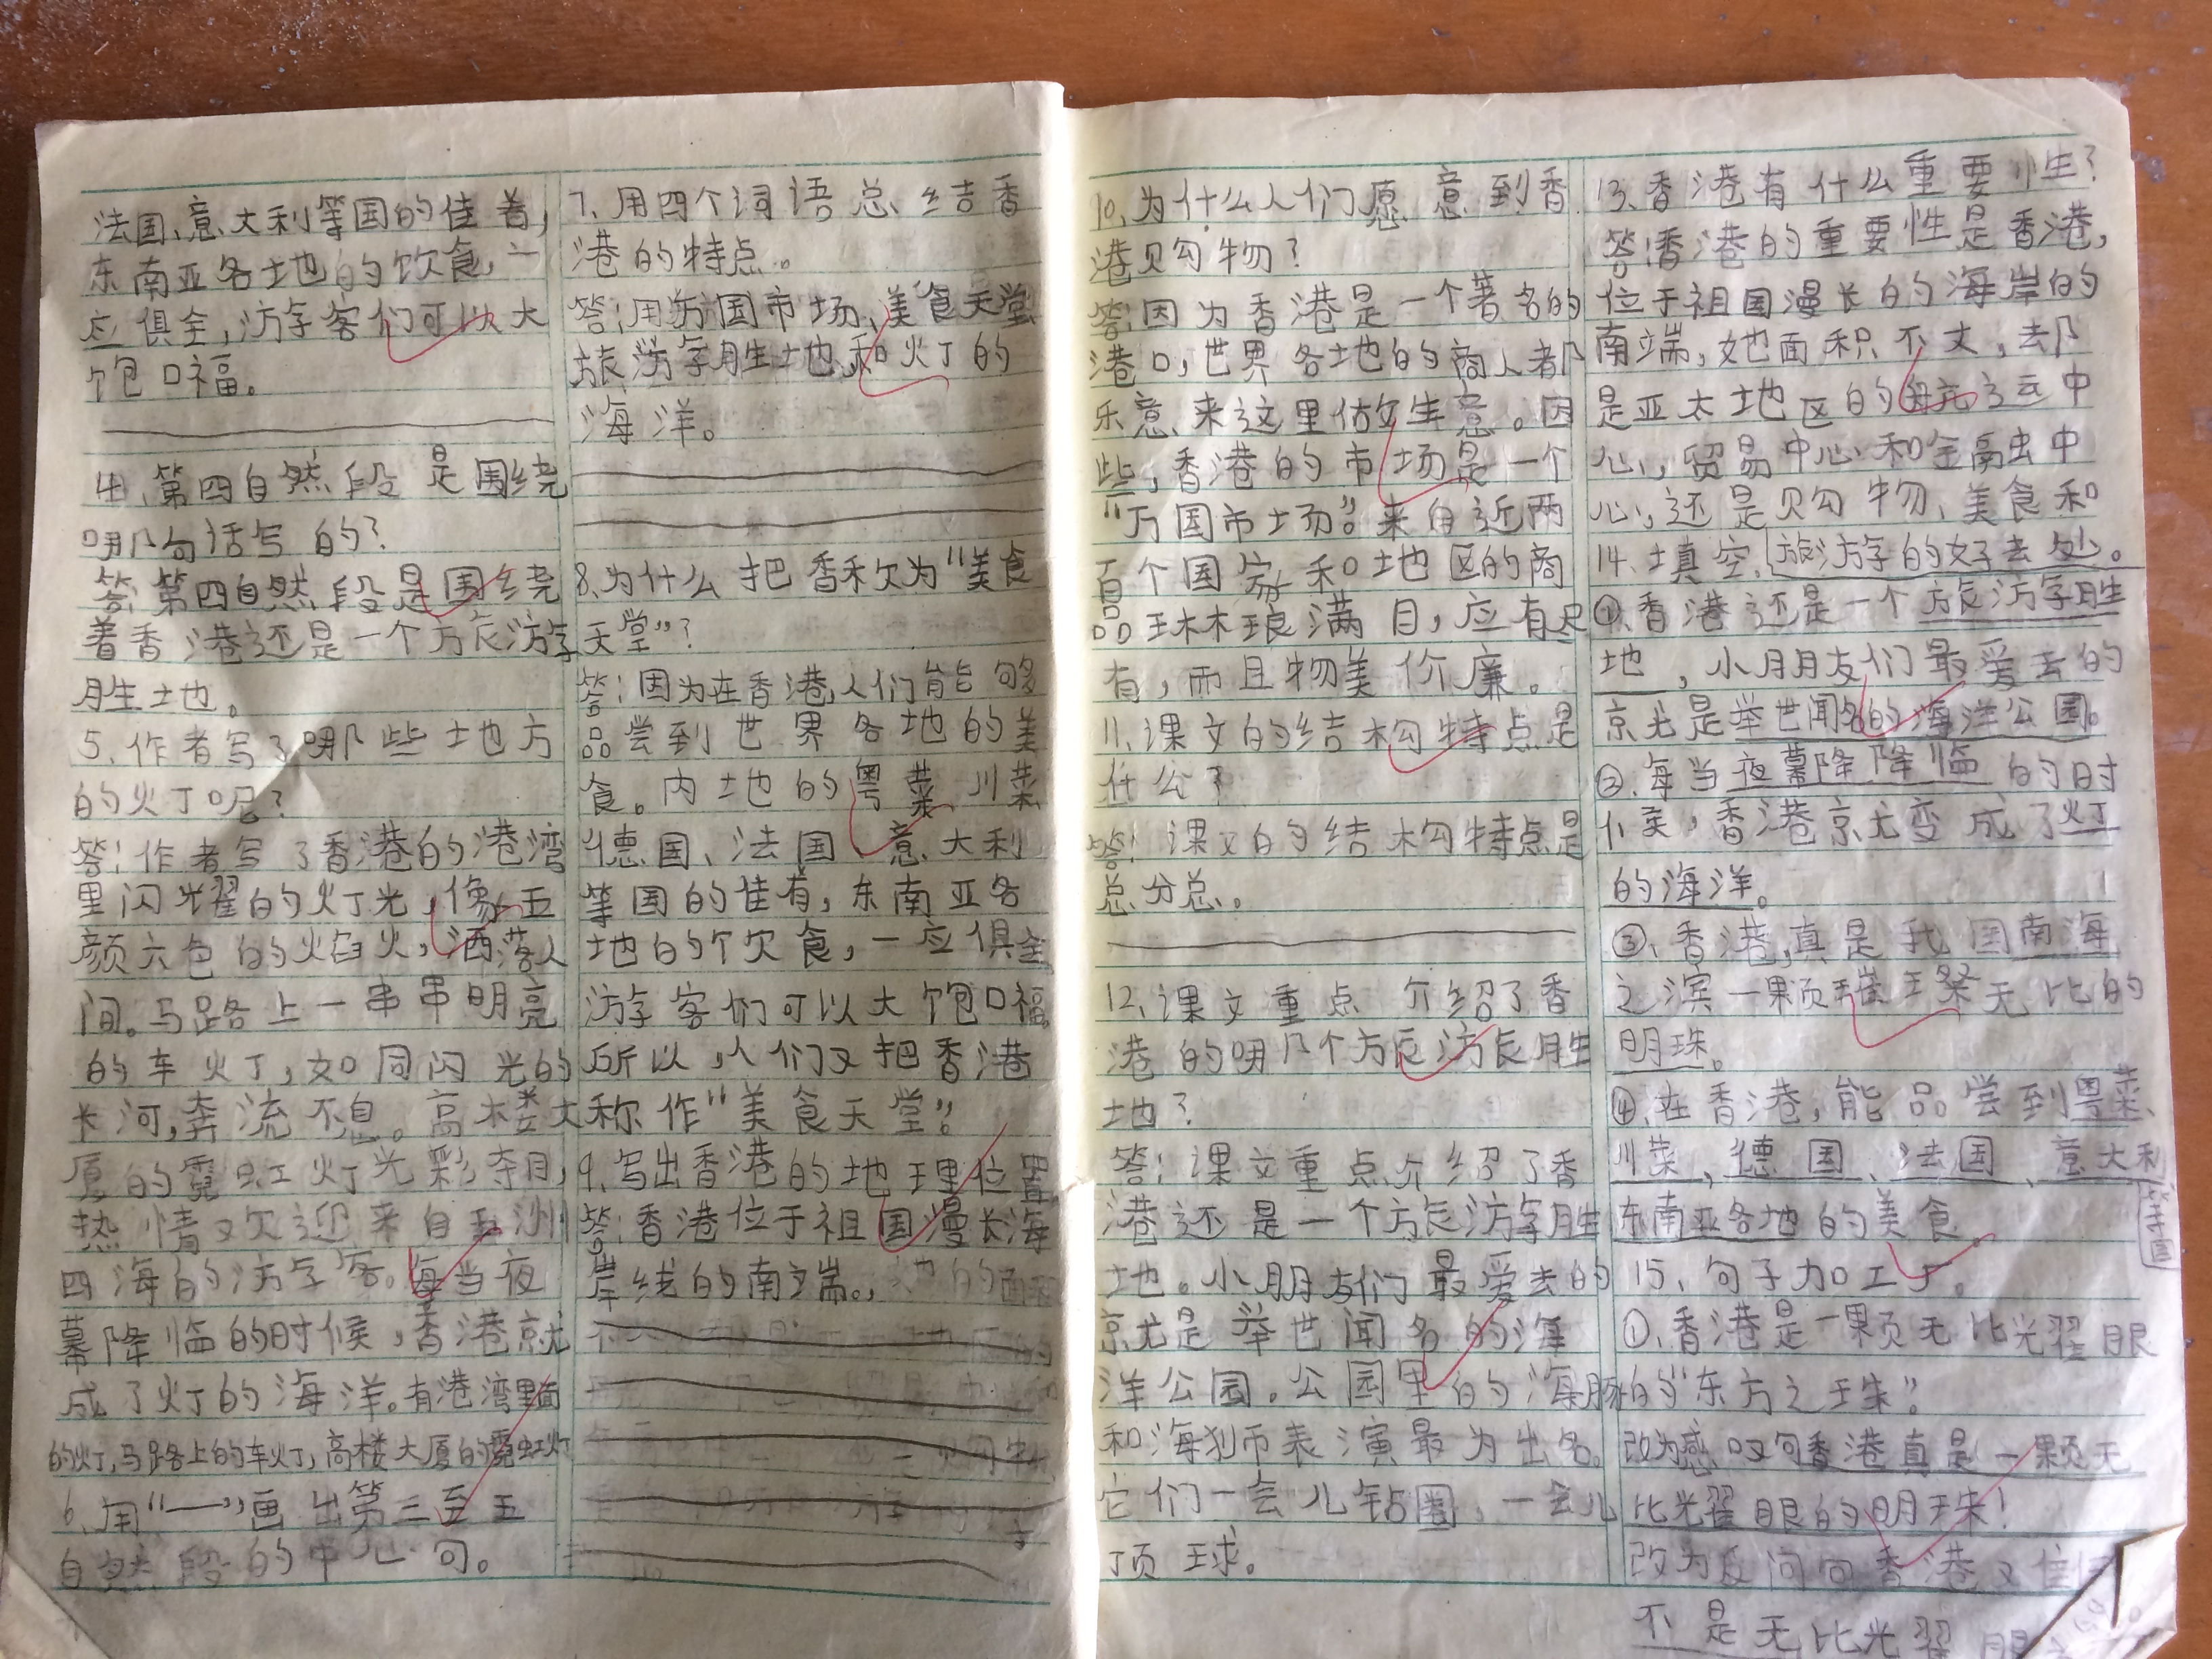 法国、意大利等国的佳着,
东南亚各地的饮食,一
应俱全,游客们可以大
饱口福。
4、第四自然段是围绕
哪句话写的?
答:第四自然段是围绕
着香港还是一个旅游
胜地。
5、作者写了哪些地方
的灯呢?
答:作者写了香港的港湾
里闪耀的灯光,像五
颜六色的焰火,洒落人
间。马路上一串串明亮
的车灯,如同闪光的
长河,奔流不息。高楼大
厦的霓虹灯光彩夺目,
热情欢迎来自五洲
四海的游客。每当夜
幕降临的时候,香港就
成了灯的海洋。有港湾里面
的灯,马路上的车灯,高楼大厦的霓虹灯
6、用“——”画出第三至五
自然段的中心句。
7、用四个词语总结香
港的特点。
答:用万国市场、美食天堂
旅游胜地和灯的
海洋。
8、为什么把香称为“美食
天堂”?
答:因为在香港,人们能够
品尝到世界各地的美
食。内地的粤菜、川菜
德国、法国、意大利
等国的佳肴,东南亚各
地的个饮食,一应俱全
游客们可以大饱口福。
所以,人们又把香港
称作“美食天堂”。
9、写出香港的地理位置
答:香港位于祖国漫长海
岸线的南端。
10、为什么人们愿意到香
港购物?
答:因为香港是一个著名的
港口,世界各地的商人都
乐意来这里做生意。因
些,香港的市场是一个
“万国市场”。来自近两
百个国家和地区的商
品琳琅满目,应有尽
有,而且物美价廉。
11、课文的结构特点是
什么?
答:课文的结构特点是
总分总。
12、课文重点介绍了香
港的哪几个旅游胜
地?
答:课文重点介绍了香
港还是一个旅游胜
地。小朋友们最爱去的
就是举世闻名的海
洋公园。公园里的海豚
和海狮表演最为出名。
它们一会儿钻圈,一会儿
顶球。
13、香港有什么重要性?
答:香港的重要性是香港,
位于祖国漫长的海岸的
南端,她面积不大,却
是亚太地区的航运中
心,贸易中心和金融中
心,还是购物、美食和
旅游的好去处。
14、填空。
①、香港还是一个旅游胜
地,小朋友们最爱去的
就是举世闻名的海洋公园。
②、每当夜幕降降临的时
候,香港就变成了灯
的海洋。
③、香港,真是我国南海
之滨一颗璀璨无比的
明珠。
④、在香港,能品尝到粤菜、
川菜,德国、法国、意大利
等国
东南亚各地的美食。
15、句子加工厂。
①、香港是一颗无比光耀眼
的“东方之珠”。
改为感叹句香港真是一颗无
比光耀眼的明珠!
改为反问句香港
不是无比光耀眼